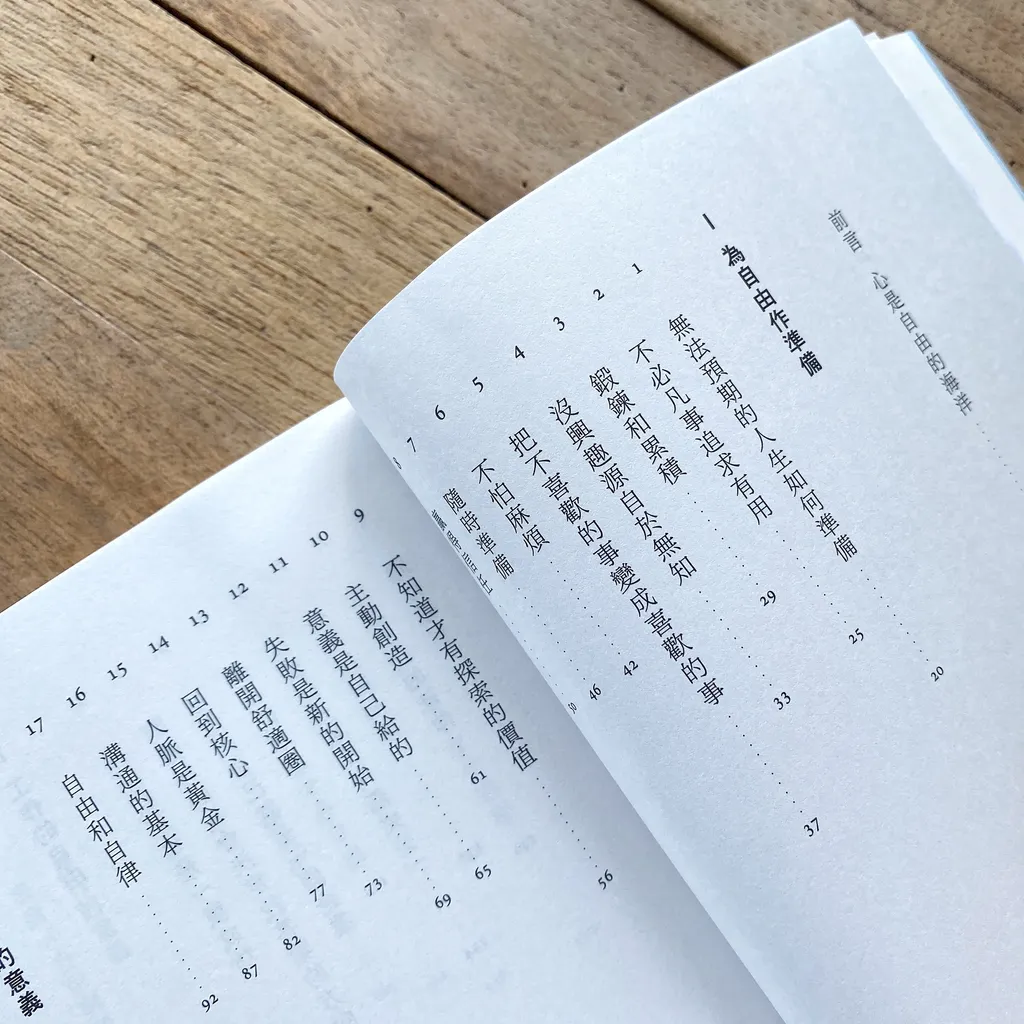 前言 心是自由的海洋
I 為自由作準備
1 無法預期的人生如何準備 20
2 不必凡事追求有用 25
3 鍛鍊和累積 29
4 沒興趣源自於無知 33
5 把不喜歡的事變成喜歡的事 37
6 不怕麻煩 42
7 隨時準備 46
8 贏得信任 50
9 不知道才有探索的價值 56
10 主動創造 61
11 意義是自己給的 65
12 失敗是新的開始 69
13 離開舒適圈 73
14 回到核心 77
15 人脈是黃金 82
16 溝通的基本 87
17 自由和自律 92
的意義